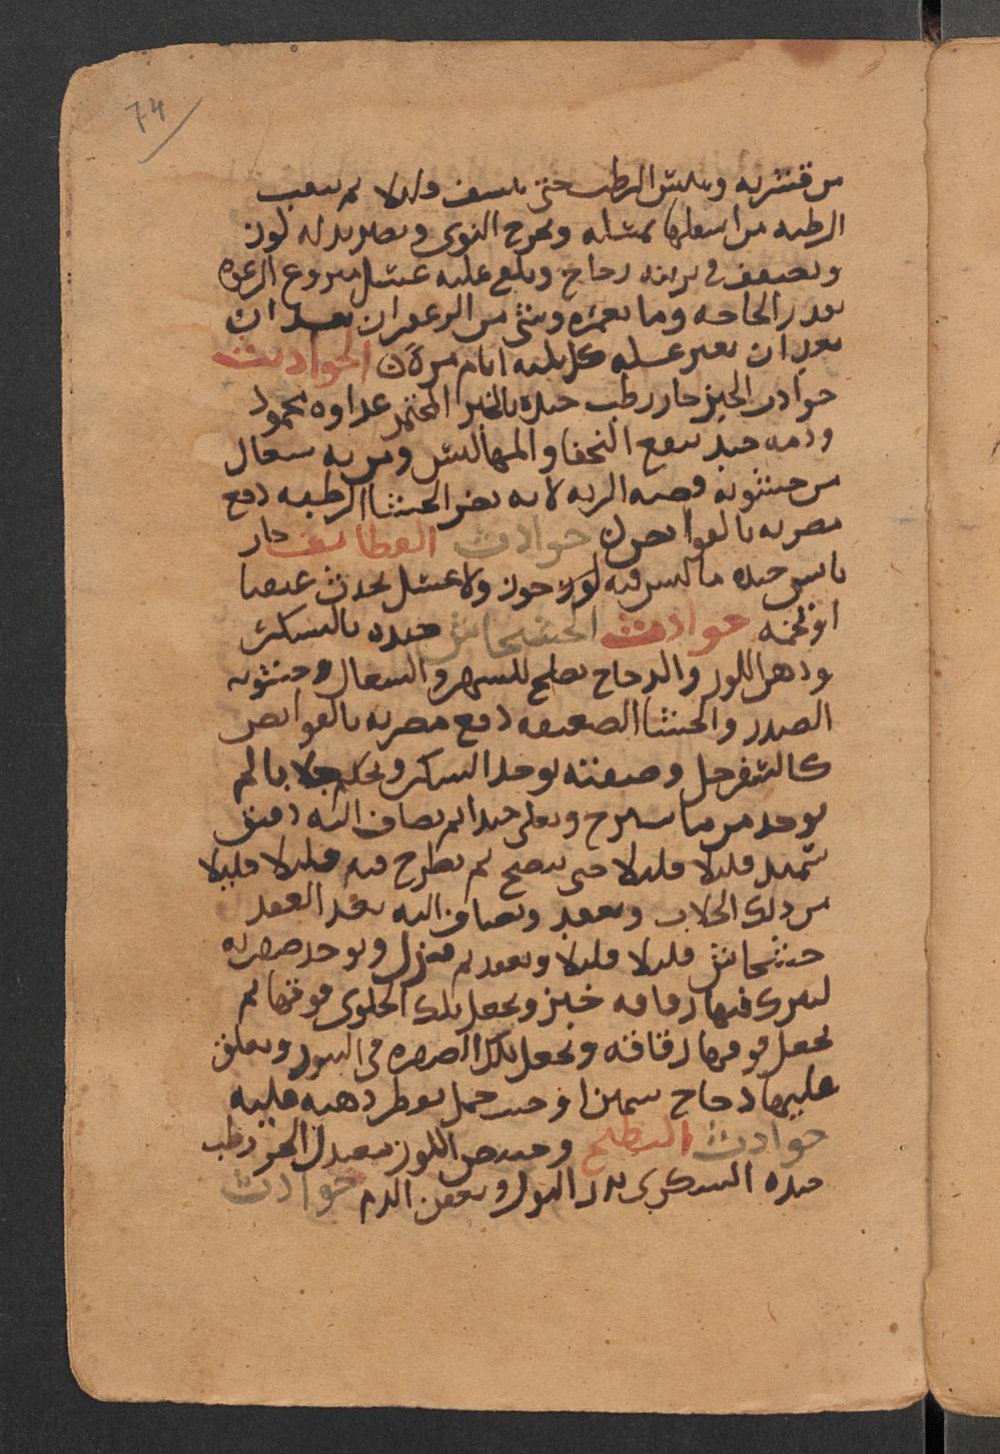 74
من قشريه ويبش الرطب حتى ينشف قليلا ثم يثقب
الرطبه من اسفلها بمسله ويخرج النوى ويصير بدله لوز
ويصفف في برنيه زجاج ويلقى عليه عسل منزوع الرغوه
بقدر الحاجه وما يغمره وشي من الزعفران بعد ان
بعد ان يغير عسله كل ثلثه ايام مرتان الجوادب
جوادب الخبز حار رطب جيده بالخبز المختمر غداوه محمود
ودمه جيد ينفع النحفا والمهاليس ومن به سعال
من خشونه قصبه الريه لانه يضر الاحشا الرطبه دفع
مضرته بالقوابض جوادب القطايف حار
يابس جيده ما ليس فيه لوز جوز ولا عسل يحدث عنها
او تخمه جوادب الخشخاش جيده بالسكر
ودهن اللوز والدجاج يصلح للسهر والسعال وخشونه
الصدر والاحشا الضعيفه دفع مضرته بالقوابض
كالسفرجل وصنعته يوخد السكر ويحكم جلابا ثم
يوخد من ما سيرج ويغلى جيدا ثم يضاف اليه دقيق
سميد قليلا قليلا حتى ينضج ثم يطرح فيه قليلا قليلا
من دلك الجلاب ويعقد ويضاف اليه بعد العقد
خشخاش قليلا قليلا ويعقد ثم ينزل ويوخد
ليترك فيها رقاقه خبز ويجعل تلك الحلوى فوقها ثم
يجعل فوقها رقاقه ويجعل تلك في التنور ويعلق
عليها دجاج سمين او جنب حمل يقطر دهنه عليه
جوادب البطيخ وخبيص اللوز معتدل الحر رطب
جيده السكرى يدر البول ويعفن الدم جوادب